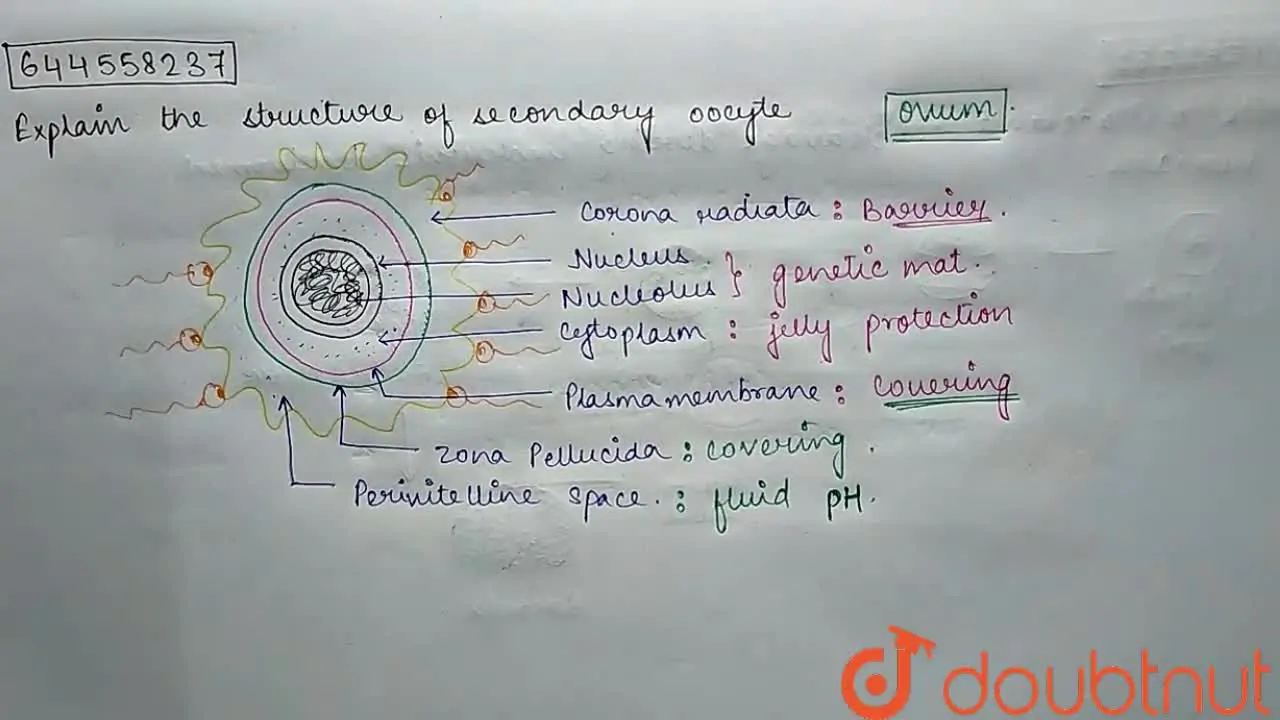 644558237
Explain the structure of secondary oocyte ovum.
Corona radiata : Barrier.
Nucleus
Nucleolus } genetic mat.
Cytoplasm : jelly protection
Plasma membrane : covering
Zona Pellucida : covering.
Perivitelline space. : fluid pH.
doubtnut